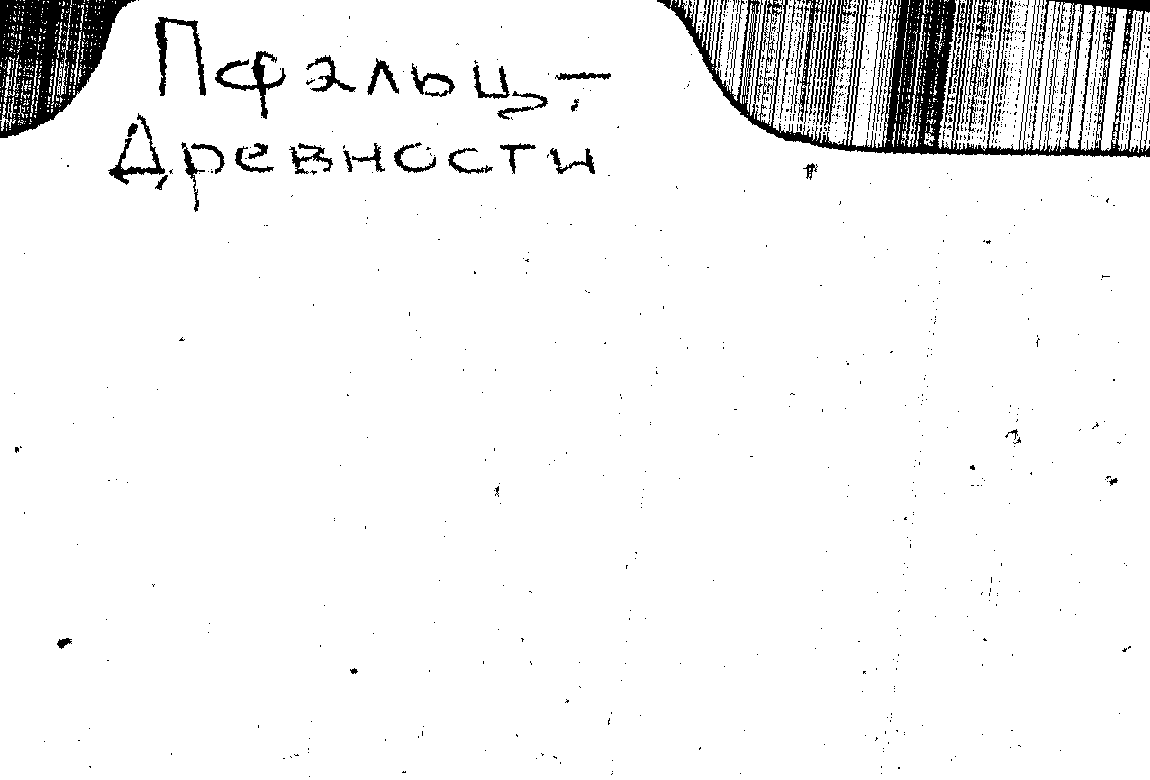 Пфальц. –
Древности